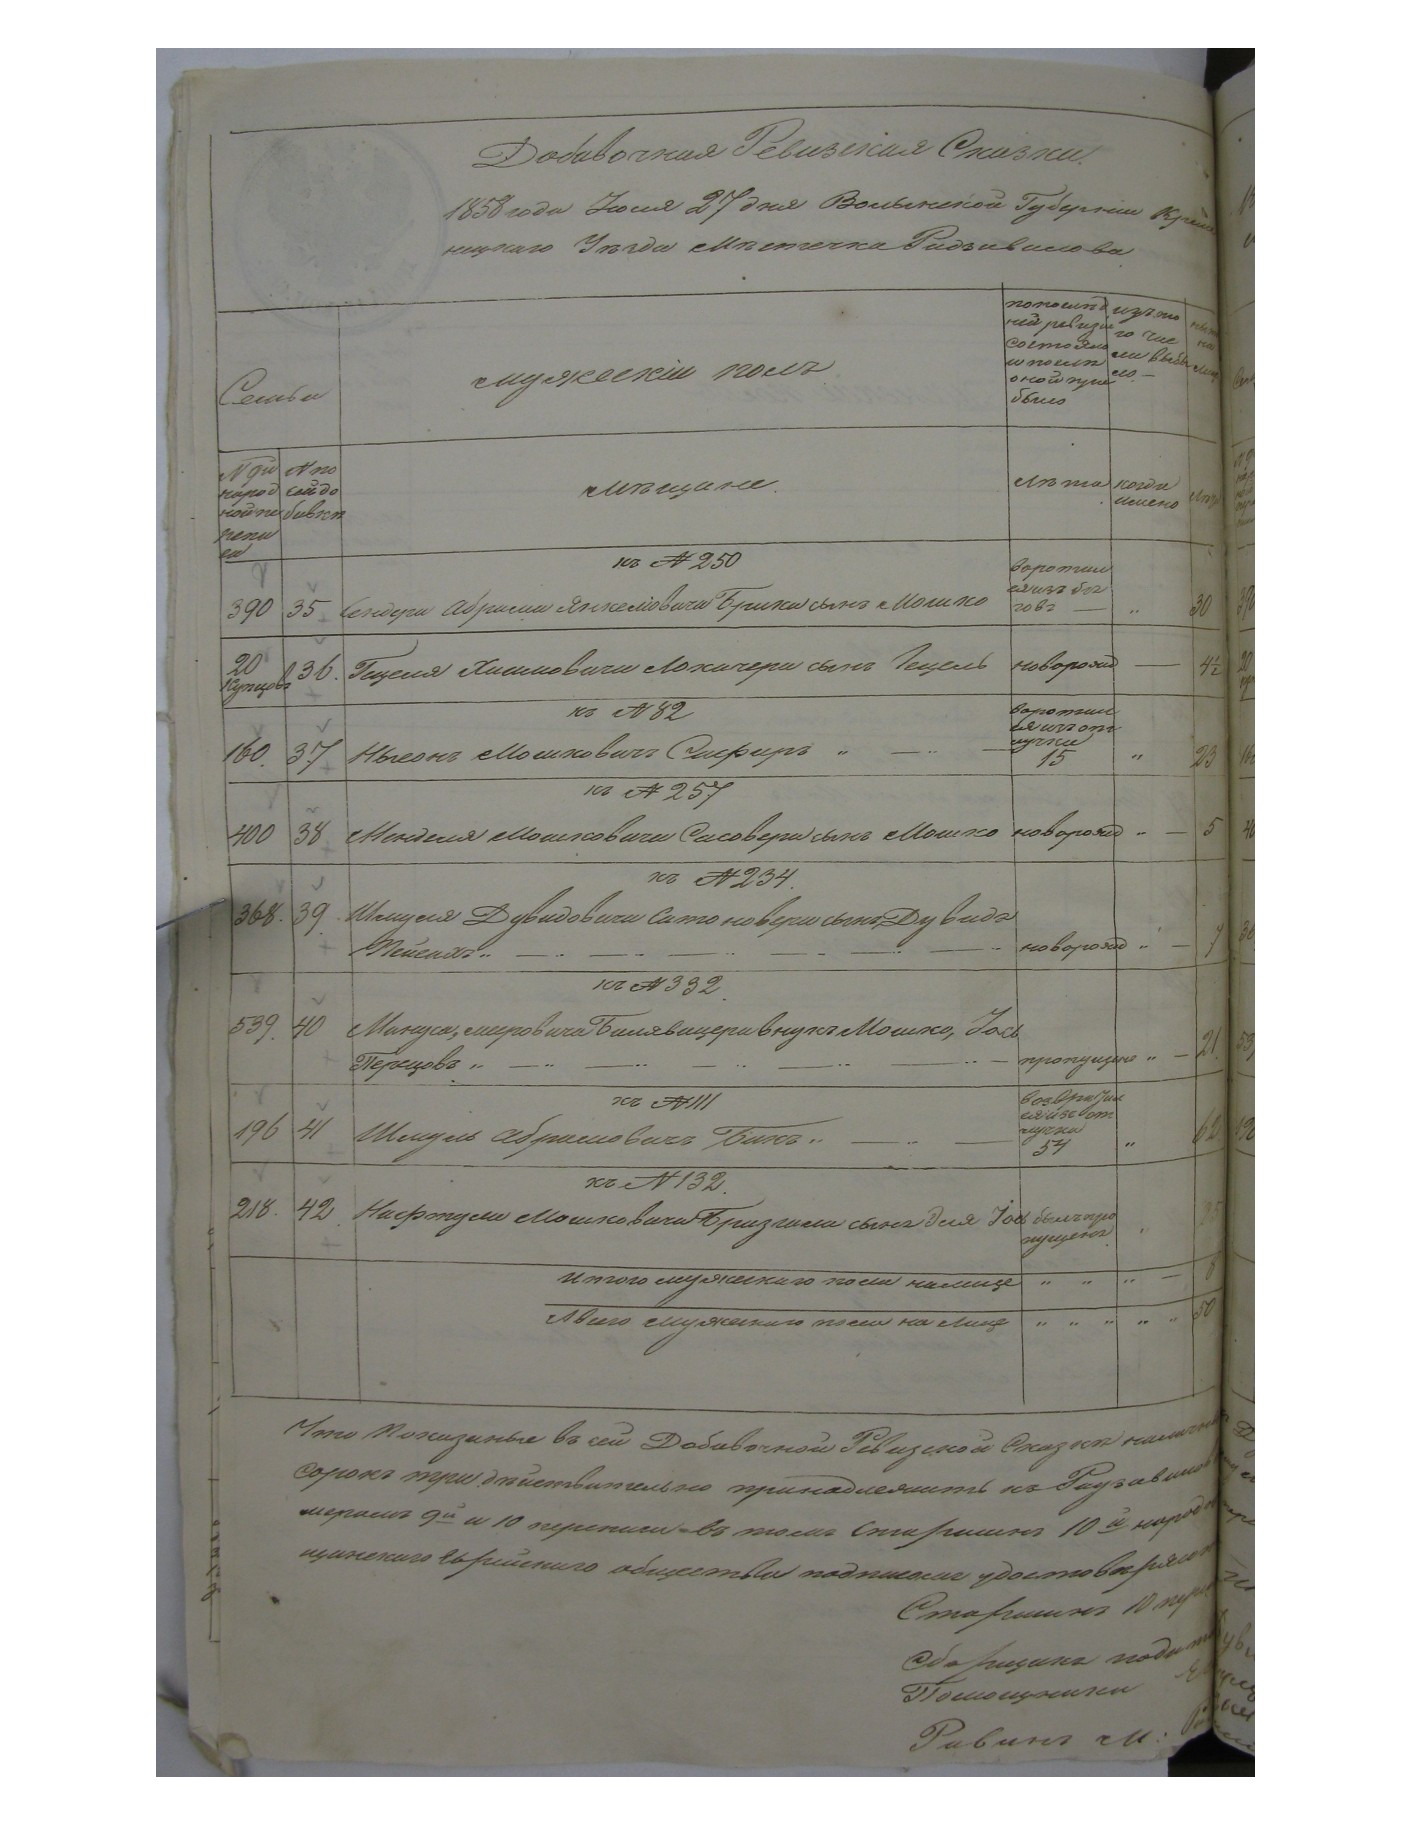 Добавочная Ревизская Сказка.
1858 года Июля 27 дня Волынской Губерніи Креме
нецкаго Уезда Мѣстечка Радзивилова
Семьи
мужескій полъ
по послѣд
ней ревизіи
состояло
и послѣ
оной при
было
изъ то
го чис
ла выбы
ло. —
ныне
на
лицо
N 9й
народ
ной пе
репи
си
N по
сей до
бавкѣ
Мѣщане.
Лѣта
когда
имено
лѣт
къ N 250
390 35 Сендера Абрама Янкеліовича Брика сынъ Мошко
воротил
ся изъ бѣ
говъ — „ 30
20
Купцовъ 36. Гецеля Хаимовича Локачера сынъ Гецель новорожд — 4½
къ N 82
160. 37 Нысонъ Мошковичъ Сафиръ „ — „ —
воротил
ся изъ от
лучки
15 „ 23
къ N 257
400 38 Менделя Мошковича Сасовера сынъ Мошко новорожд „ — 5
къ N 234.
368. 39. Шмуля Дувидовича Сатановера сынъ Дувидъ
Пейсахъ „ — „ — „ — „ — „ — „ новорожд „ — 7
къ N 332.
539. 40 Мануса, меровича Билявицера внукъ Мошко, Іось
Перцовъ „ — „ — „ — „ — „ — „ — пропущено „ — 21.
къ N 111
196 41 Шмуль Абрамовичъ Бикъ „ — „ —
возвратил
ся изъ от
лучки
54 „ 62
къ N 132.
218. 42. Нафтули Мошковича Бризгала сынъ Эля Іось былъ про
пущенъ.
Итого мужескаго пола налице „ „ „ — 8
А всего мужескаго пола на лице „ „ „ „ „ 50
Что показанные въ сей Добавочной Ревизской Сказкѣ налично
сорокъ три дѣйствительно принадлежатъ къ Радзивилов
мерамъ 9й и 10 переписи въ томъ Старшина 10й народн
щанскаго Еврейскаго общества подписомъ удостовѣряемъ
Старшина 10 пере
Сборщикъ подат
Помощники
Равинъ М: